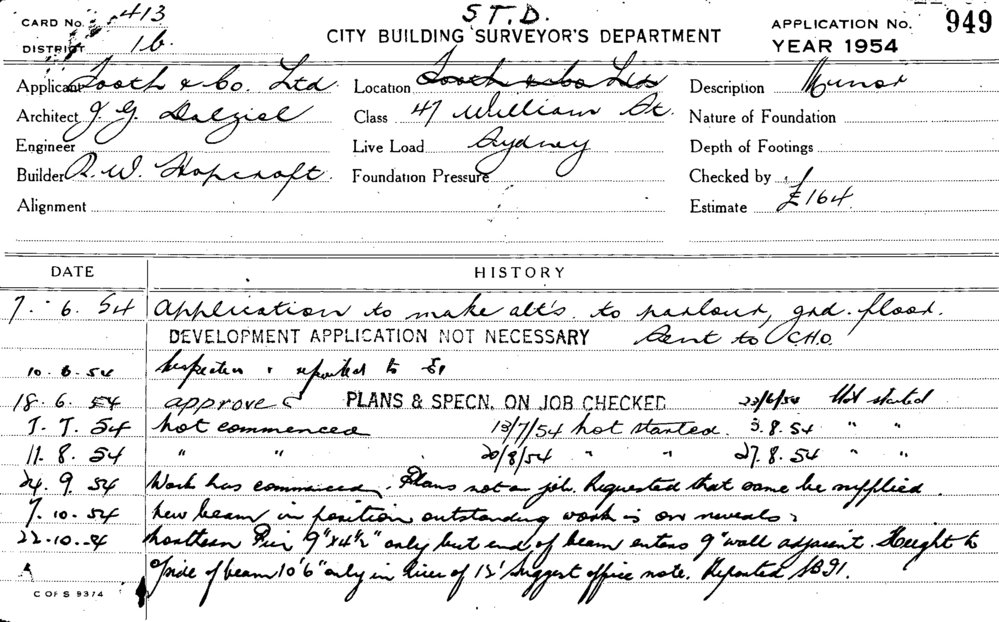 CARD NO. 413
S.T.D.
APPLICATION NO. 949
DISTRICT 1b.
CITY BUILDING SURVEYOR'S DEPARTMENT
YEAR 1954
Applicant Tooth & Co. Ltd Location Tooth & Co Ltd Description Minor
Architect J. G. Dalziel Class 47 William St. Nature of Foundation
Engineer Live Load Sydney Depth of Footings
Builder R. W. Hopcroft. Foundation Pressure Checked by
Alignment Estimate £164.
DATE HISTORY
7. 6. 54 Application to make alt's. to parlour, grd. floor.
DEVELOPMENT APPLICATION NOT NECESSARY Sent to C.H.O.
10. 6. 54 Inspection & reported to
18. 6. 54 approved PLANS & SPECN. ON JOB CHECKED 23/6/54 Not started
7. 7. 54 not commenced 13/7/54 not started. 3. 8. 54 " "
11. 8. 54 " " 20/8/54 " " 27. 8. 54 " "
24. 9. 54 Work has commenced. Plans not on job. Requested that same be supplied.
7. 10. 54 new beam in position outstanding work is on reveals.
22. 10. 54 Northern Pier 9"x4½" only but end of beam enters 9" wall adjacent. Height to
u/side of beam 10'6" only in lieu of 12' suggest office note. Reported SBI.
C OF S 9374